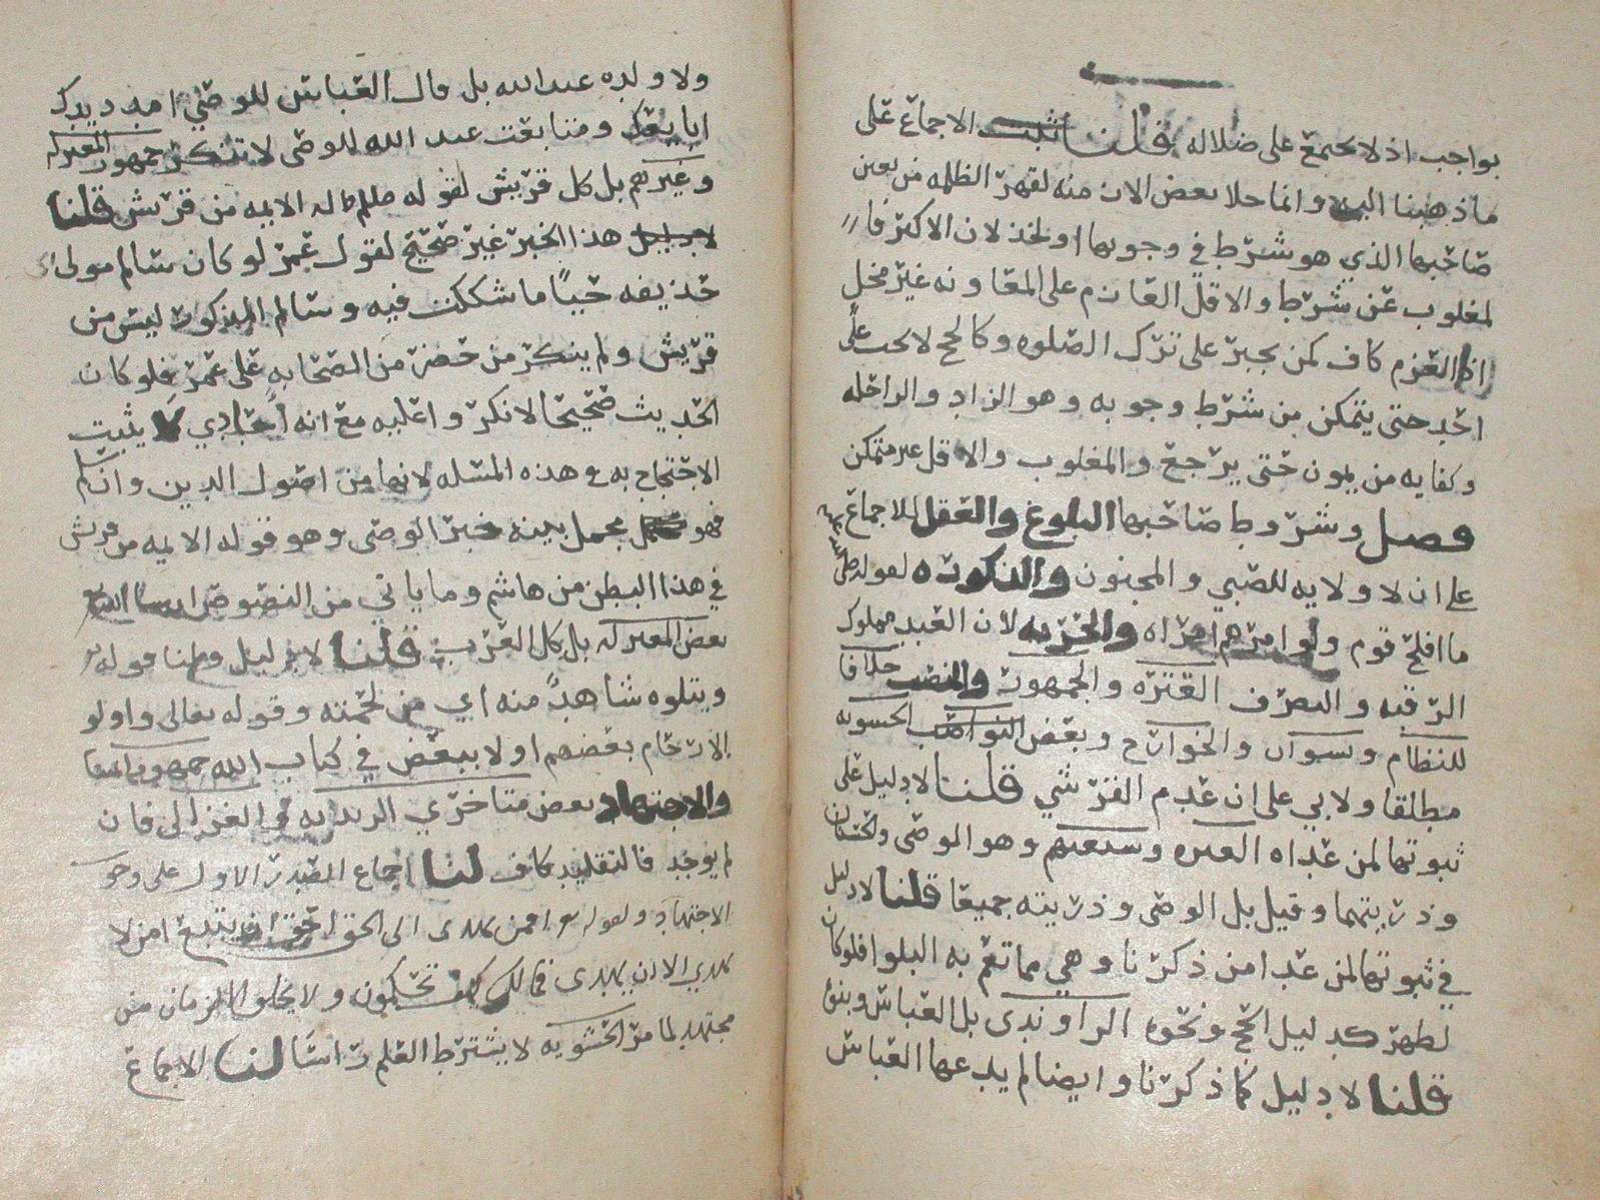 بواجب اذ لا تجتمع على ضلاله قلنا ثبت الاجماع على
ما ذهبنا اليه وانما خلا بعض الازمنه لقهر الظلمه من يعين
صاحبها الذي هو شرط في وجوبها او لخذلان الاكثر فا
لمغلوب عن شرط والاقل العازم على المعاونه غير مخل
اذ العزم كاف كمن يجبر على ترك الصلوه وكالحج لا يجب على
احد حتى يتمكن من شرط وجوبه وهو الزاد والراحله
وكفايه من يمون حتى يرجع والمغلوب والاقل غير متمكن
فصل وشروط صاحبها البلوغ والعقل للاجماع
على ان لا ولايه للصبي والمجنون والذكوره لقوله صلى
ما افلح قوم ولوا امرهم امراه والحريه لان العبد مملوك
الرقبه والتصرف العتره والجمهور والمنصب خلافا
للنظام ونشوان والخوارج وبعض الحشويه
مطلقا ولابي علي ان عدم القرشي قلنا لا دليل على
ثبوتها لمن عداه العتره وشيعتهم وهو الوصي والحسنان
وذريتهما وقيل بل الوصي وذريته جميعا قلنا لا دليل
في ثبوتها لمن عدا من ذكرنا وهي مما تعم به البلوا فلو كان
لظهر كدليل الحج ونحوه الراوندي بل العباس وبنوه
قلنا لا دليل كما ذكرنا وايضا لم يدعها العباس
ولا ولده عبدالله بل قال العباس للوصي امدد يدك
ابايعك ومتابعت عبد الله للوصي لا تنكر جمهور المعتزله
وغيرهم بل كل قريش لقوله صللم الايمه من قريش قلنا
هذا الخبر غير صحيح لقول عمر لو كان سالم مولى
حذيفه حيًا ما شككت فيه وسالم المذكور ليس من
قريش ولم ينكر من حضر من الصحابه على عمر فلو كان
الحديث صحيحا لانكروا عليه مع انه احادي لا يثبت
الاحتجاج به في هذه المسئله لانها من اصول الدين وان سلم
فهو مجمل بينه خبر الوصي وهو قوله الايمه من قريش
في هذا البطن من هاشم وما ياتي من النصوص
بعض المعتزله بل كل العرب قلنا لا دليل ولنا قوله
ويتلوه شاهدٌ منه اي من لحمته وقوله تعالى واولو
الارحام بعضهم اولا ببعض في كتاب الله جمهور
والاجتهاد بعض متاخري الزيديه والغزالي فان
لم يوجد فالتقليد كاف لنا اجماع الصدر الاول على وجوب
الاجتهاد ولقوله افمن يهدى الى الحق احق ان يتبع امن لا
يهدي الا ان يهدى فمالكم كيف تحكمون ولا يخلوا الزمان من
مجتهد لما مر الحشويه لا يشترط العلم راسًا لنا الاجماع